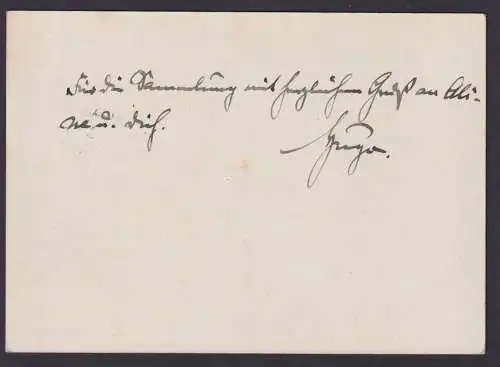 Für die Sammlung mit herzlichem Gruß an Ali-
ne u. Dich.
Hugo.